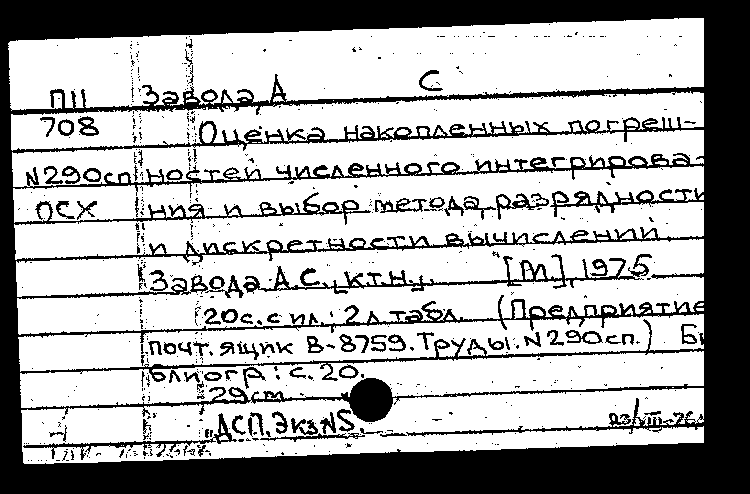 П11 Завода, А С
708 Оценка накопленных погреш-
N290сп ностей численного интегрирова-
ОСХ ния и выбор метода, разрядности
и дискретности вычислений.
Завода А.С., к.т.н., [М.], 1975
20с. с ил.; 2л табл. (Предприятие
почт. ящик В-8759. Труды. N290сп.) Би
блиогр: с. 20.
29cm
"ДСП, Экз N5.
23/VIII-76